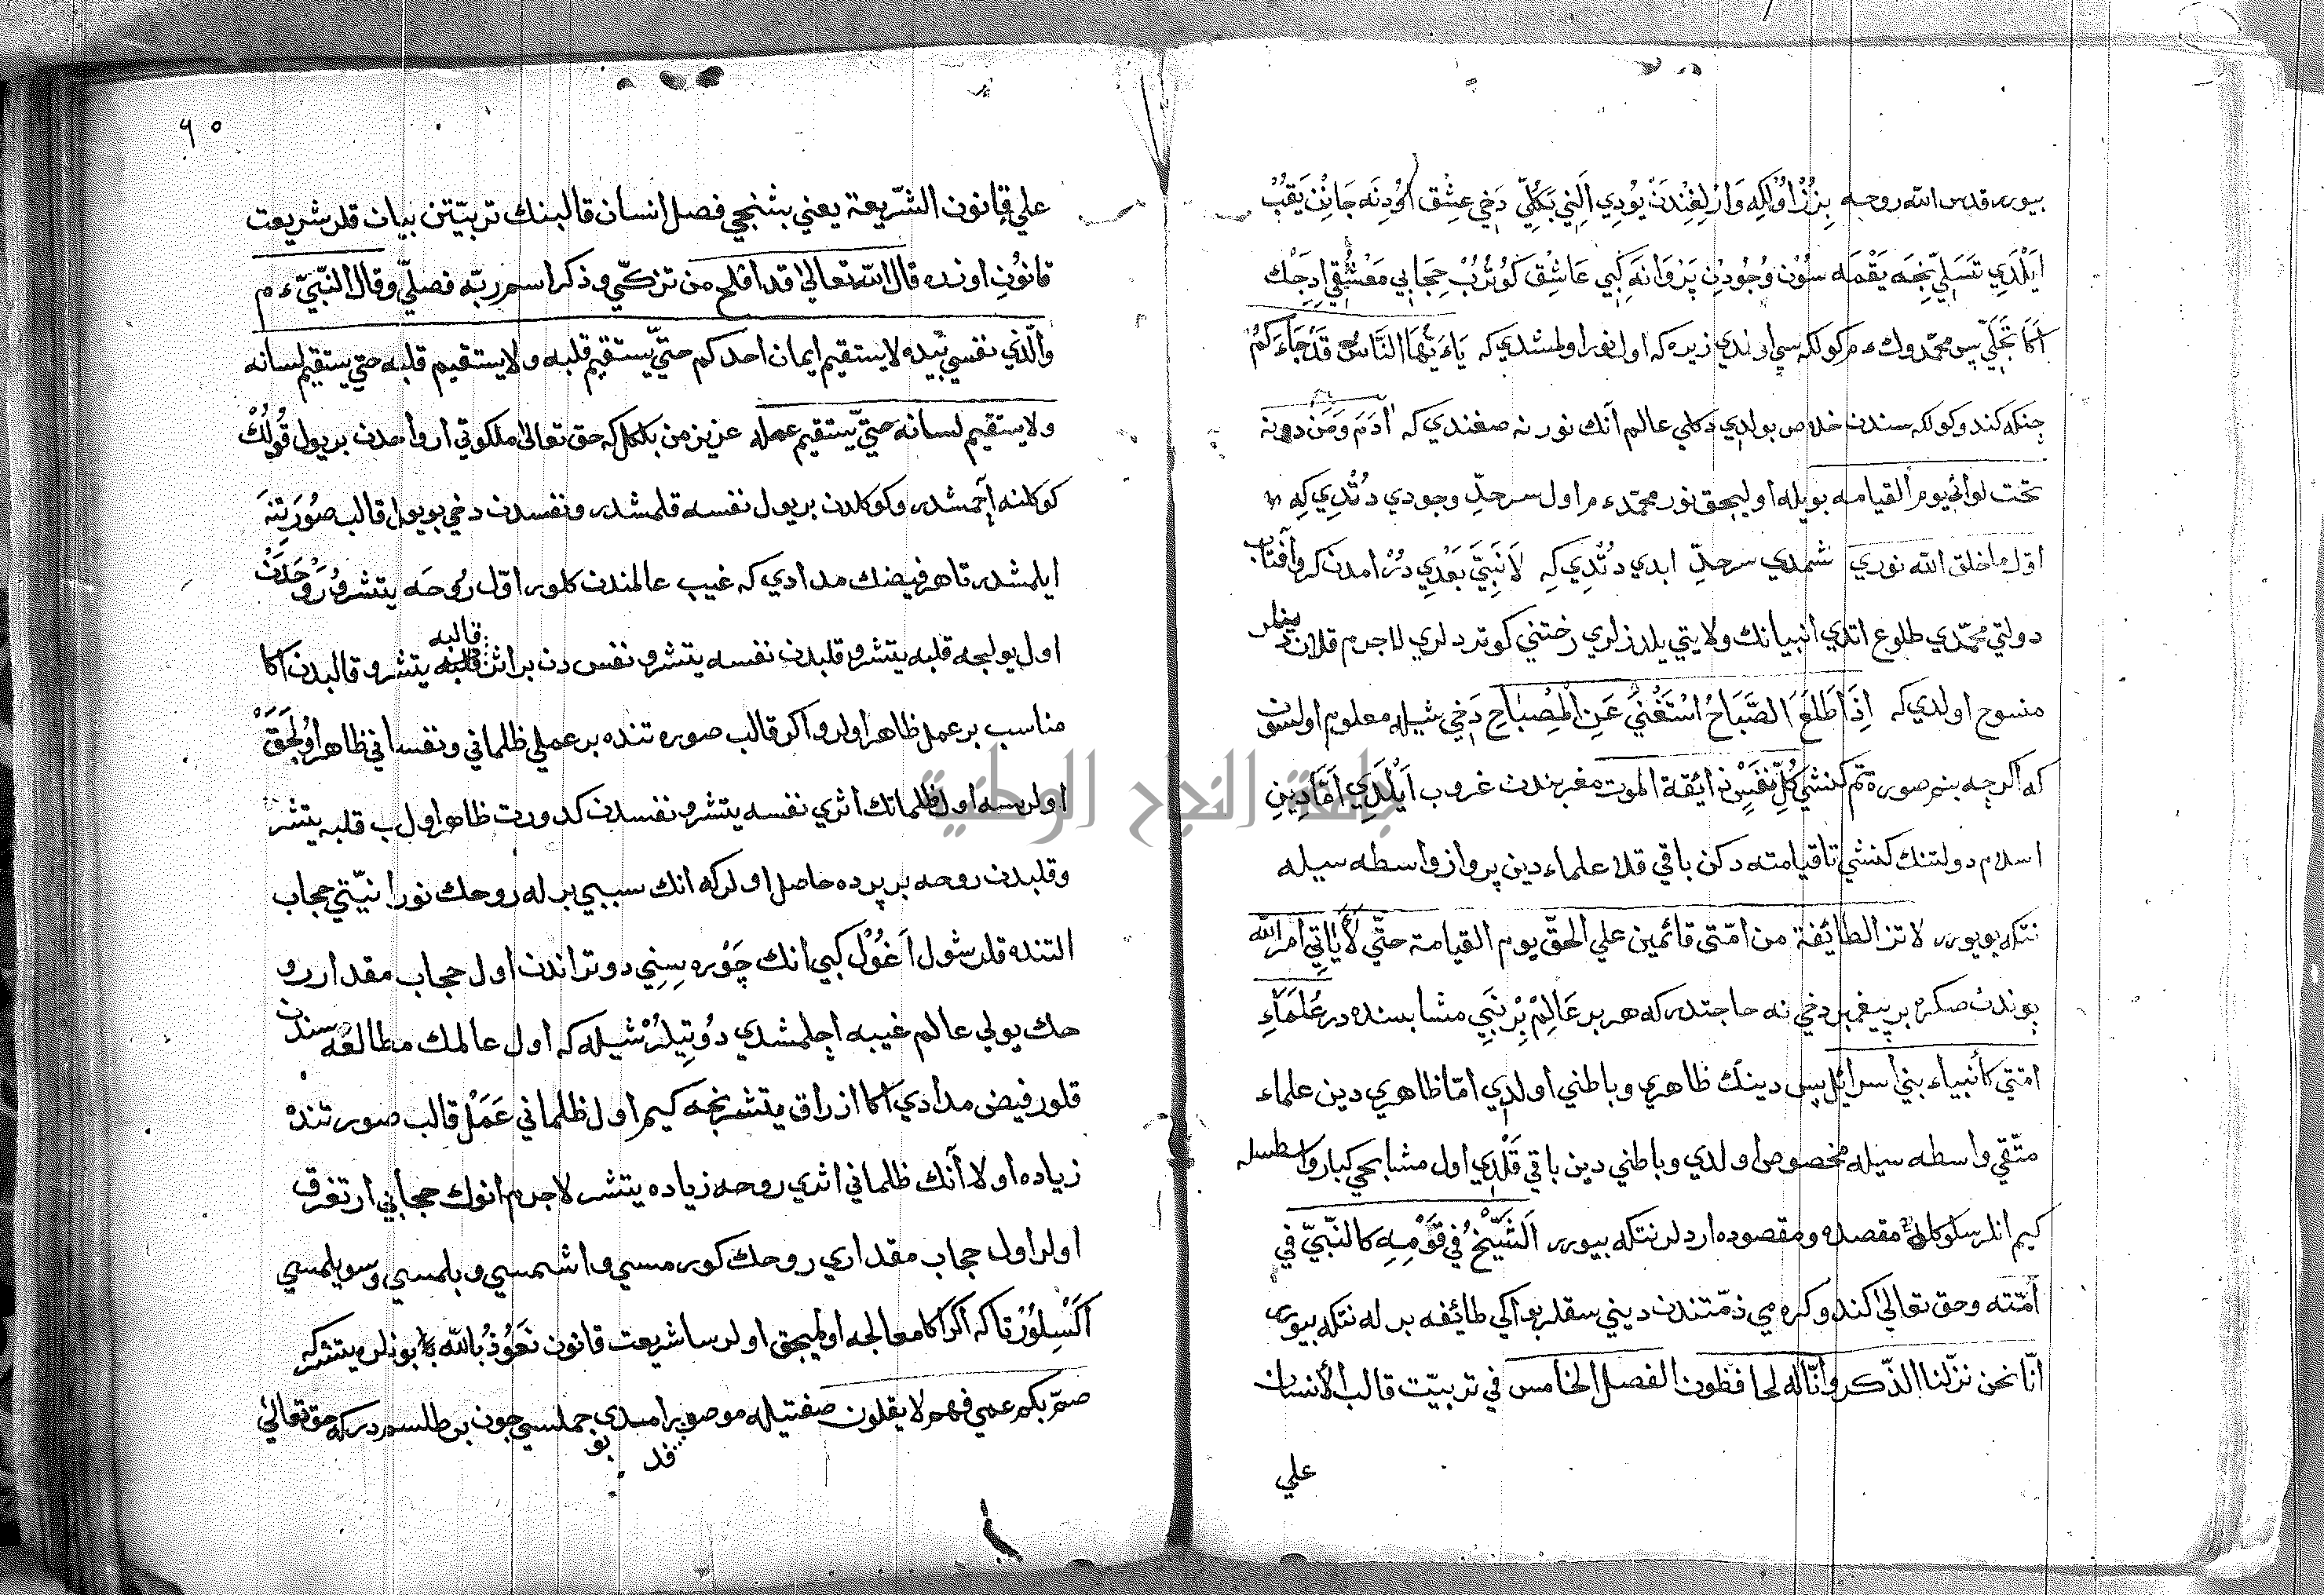 بيورر قدس الله روحه بزز اولكه وارلغندن يودي الني بكلي دخي عشق اودنه جانن يقب
ايلدي تسلي نجه يقمه سون وجودن پروانه كبي عاشق كوترب حجابي معشقي ايدجك
اكا تجلي پس محمدوك ءم كولكه سي اولندي زيره كه اول نور اولمشدي كه ياءيتها الناس قد جاءكم
چنكه كندو كولكه سندن خلاص بولدي دكلي عالم انك نورنه صغندي كه ادم ومن دونه
تحت لوائي يوم القيامه بويله اوليجق نور محمد ءم اول سرحد وجودي دتدي كه
اول ما خلق الله نوري شمدي سرحد ابدي دتدي كه لا نبي بعدي درامدن كرو آفتاب
دولتي محمدي طلوع اتدي انبيانك ولايتي يلدزلري رختني كوتردلري لاجرم قلان دينلر
منسوح اولدي كه اذا طلع الصباح استغني عن المصباح دخي شيله معلوم اولسون
كه اكرچه بنم صورةتم كنشي كل نفس ذائقة الموت مغربندن غروب ايلدي اما دين
اسلام دولتنك كنشي تا قيامته دكن باقي قلا علماء دين پرواز واسطه سيله
نتكه بويورر لا تزا الطائيفة من امتى قائمين علي الحق يوم القيامة حتي لا ياتي امر الله
بوندن صكره بر پيغمبر دخي نه حاجتدر كه هر بر عالم بر نبي مشابسنده در علماء
امتي كأنبياء بني اسرائل پس دينك ظاهري وباطني اولدي اما ظاهري دين علماء
متقي واسطه سيله مخصوص اولدي وباطني دين باقي قلدي اول مشايخي كبار واسطسله
كيم انلر سلوكله مقصده ومقصوده اردلر نتكه بيورر الشيخ في قومه كالنبي في
امته وحق تعالي كندو كرمي ذمتندن ديني سقلر بو ايكي طائفه بر له نتكه بيورر
انا نحن نزلنا الذكر وانا له لحافظون الفصل الخامس في تربيت قالب الأنسان
علي
٦٠
علي قانون الشريعة يعني بشنجي فصل انسان قالبنك تربيتن بيان قلر شريعت
قانون اوزره قال الله تعالى قد افلح من تزكي وذكر اسم ربه فصلي وقال النبي ءم
والذي نفسي بيده لا يستقيم ايمان احدكم حتي يستقيم قلبه ولا يستقيم قلبه حتي يستقيم لسانه
ولا يستقيم لسانه حتي يستقيم عمله عزيز من بلكل كه حق تعالى ملكوتي ارواحدن بر يول قولك
كوكلنه آچمشدر وكوكلدن بر يول نفسه قلمشدر ونفسدن دخي بو يول قالب صورتنه
ايلمشدر تا هر فيضك مدادي كه غيب عالمندن كلور اول روحه يتشر و روحدن
اول يوليجه قلبه يتشر و قلبدن نفسه يتشر و نفس دن بر اثر قالبه يتشر و قالبدن اكا
مناسب بر عمل ظاهر اولر و اكر قالب صوره تنده بر عملي ظلماني ونفساني ظاهر اولجق
اولرسه اول ظلماتك اثري نفسه يتشر و نفسدن كدورت ظاهر اولب قلبه يتشر
وقلبدن روحه بر پرده حاصل اولر كه انك سببي بر له روحك نورانيتي حجاب
التنده قلر شول اغول كبي انك چوره سني دوتر اندن اول حجاب مقدار رو
حك يولي عالم غيبه اچلمشدي دوتيلر شيله كه اول عالمك مطالعه سندن
قلور فيض مدادي اكا از راق يتشر نجه كيم اول ظلماني عمل قالب صورتنده
زياده اولا آنك ظلماني اثري روحه زياده يتشر لاجرم انوك حجابي ارتغرق
اولر اول حجاب مقداري روحك كورمسي و اشتمسي و بلمسي و سويلمسي
اكسلور تا كه اكر اكا معالجه اولميجق اولرسا شريعت قانون نعوذ بالله بو نلره يتشر كه
صم بكم عمي فهم لا يقلون صفتيله موصوف بر امدي جملسي چون بر طلسمدر كه حق تعالى
قد بو